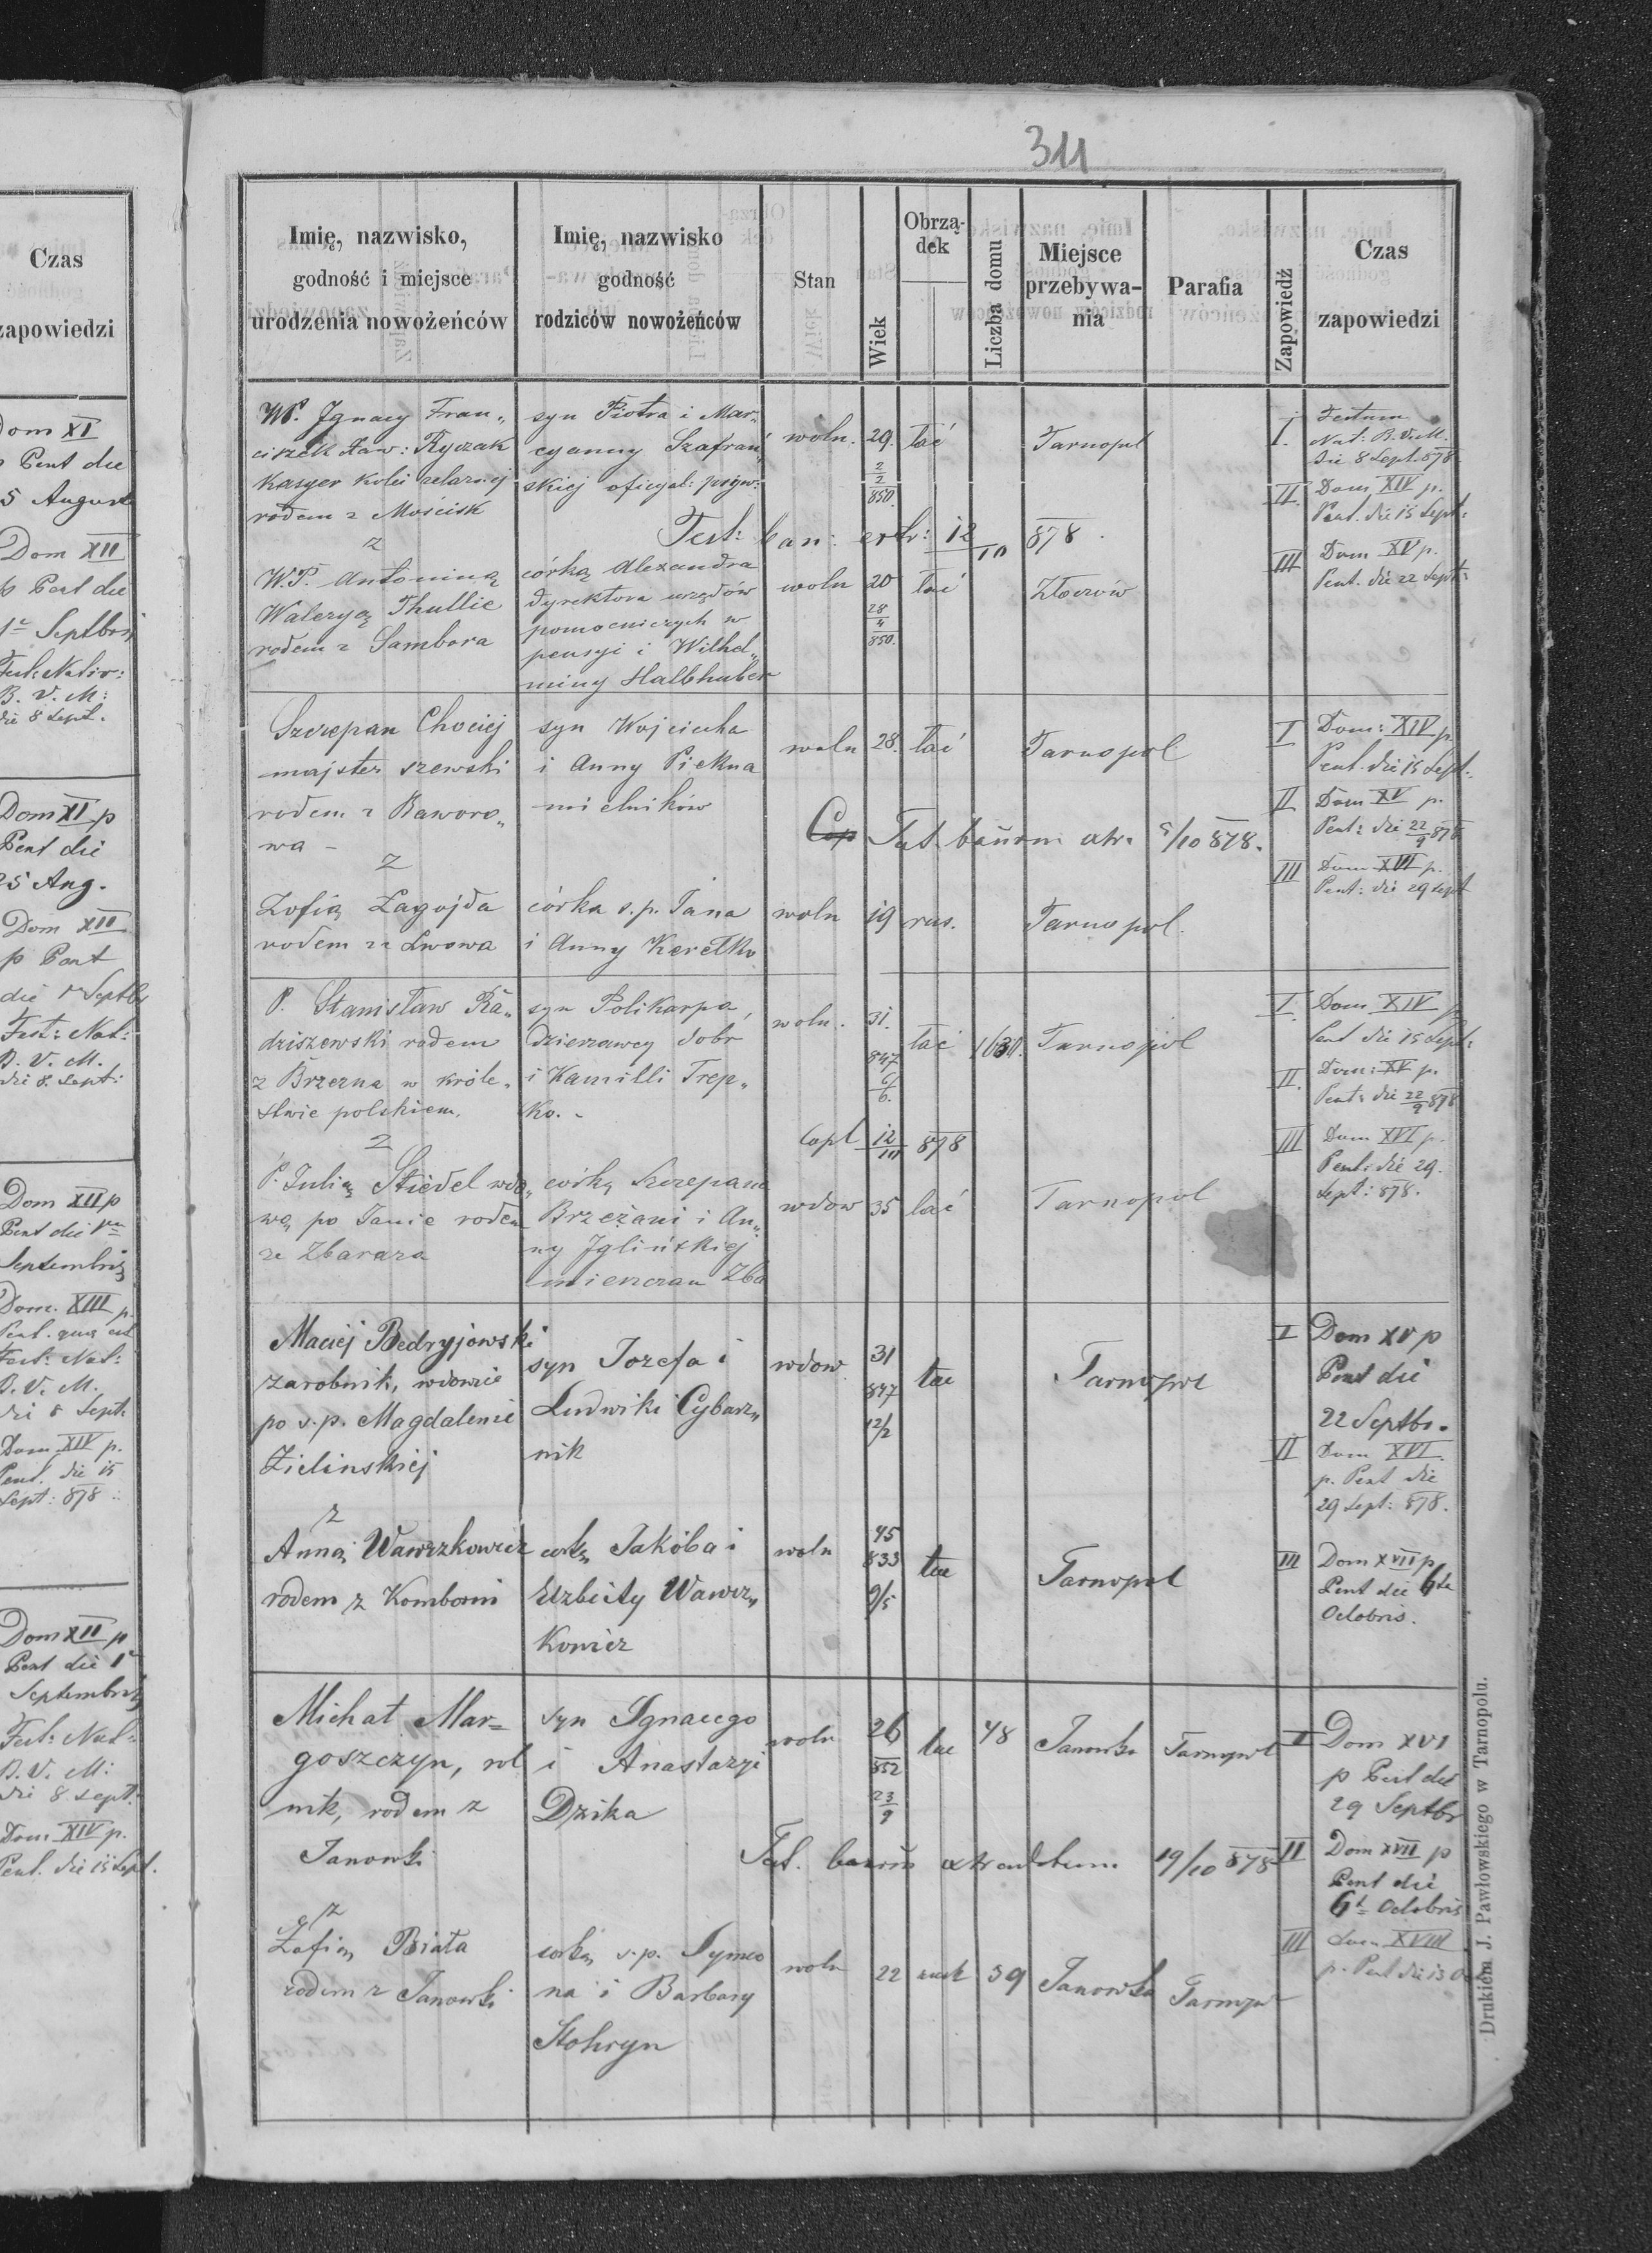 Czas
zapowiedzi
Dom XI
p Pent die
25 August
Dom XII
p Pent die
1a Septbris
Fest: Nativ:
B. V. M:
die 8 Sept.
Dom XI p
Pent die
25 Aug.
Dom XII
p Pent
die 1a Septbr
Fest: Nat:
B. V. M.
die 8. Sept:
Dom XII p
Pent die 1a
Septembris
Dom. XIII p.
Pent. quae est
Fest: Nat:
B. V. M.
die 8 Sept:
Dom XIV p.
Pent. die 15
Sept: 878
Dom XII p
Pent die 1a
Septembris
Fest: Nat:
B. V. M:
die 8 Sept.
Dom XIV p.
Pent. die 15 Sept.
311
Imię, nazwisko,
godność i miejsce
urodzenia nowożeńców
Imię, nazwisko
godność
rodziców nowożeńców
Stan
Wiek
Obrzą-
dek
Liczba domu
Miejsce
przebywa-
nia
Parafia
Zapowiedź
Czas
zapowiedzi
WP. Ignacy Fran„
ciszek Xaw: Ryczak
kasyer kolei żelaznej
rodem z Mościsk
syn Piotra i Mar„
cyanny Szafrań„
skiej oficyal: pryw:
woln. 29. łać Tarnopol
2/2 850.
I. Festum
Nat: B.V.M.
die 8 Sept. 878
II. Dom XIV p.
Pent. die 15 Sept:
III Dom XV p.
Pent. die 22 Sept:
z
Test: ban: extr: 12/10 878.
W.P. Antoniną
Waleryą Thullie
rodem z Sambora
córką Alexandra
dyrektora urzędów
pomocniczych w
pensyi i Wilhel„
miny Halbhuber
woln 20 łać Złoczów
28/4 850.
Szczepan Chociej
majster szewski
rodem z Baworo„
wa -
syn Wojciecha
i Anny Piękna
mielników
woln 28. łać Tarnopol
I Dom: XIV p
Pent. die 15 Sept.
II Dom XV p.
Pent: die 22/9 878
III Dom XVI p.
Pent: die 29 Sept
z
Cop Test. bannorum extr. 5/10 878.
Zofią Zagojda
rodem ze Lwowa
córka s.p. Jana
i Anny Keretko
woln 19 rus. Tarnopol.
P. Stanisław Ra„
dziszewski rodem
z Brzezna w króle„
stwie polskiem.
syn Polikarpa,
dzierzawcy dobr
i Kamilli Trep„
ko. -
woln. 31. łać 1630. Tarnopol
847 6/6.
I. Dom XIV p
Pent die 15 Sept:
II. Dom: XV p.
Pent: die 22/9 878
III Dom XVI p.
Pent: die 29.
Sept: 878.
z
Copl 12/10 878
P. Julią Stiedel wdo„
wą po Janie rodem
ze Zbaraza
córką Szczepana
Brzeżani i An„
ny Iglińskiej
mieszczan Zba
wdow 35 łać Tarnopol
Maciej Bedryjowski
zarobnik, wdowiec
po s.p. Magdalenie
Zielinskiej
syn Jozefa i
Ludwiki Cybarz„
nik
wdow 31 łac Tarnopol
847 12/2
I Dom XV p
Pent die
22 Septbr.
II Dom XVI
p. Pent die
29 Sept: 878.
z
Anną Wawrzkowicz
rodem z Komborni
corką Jakóba i
Elzbiety Wawrz„
kowicz
woln 45 łac Tarnopol
833 9/5
III Dom XVII p
Pent die 6ta
Octobris.
Michał Mar=
goszczyn, rol
nik, rodem z
Janowki
syn Ignacego
i Anastazyi
Dzika
woln 26 łac 48 Janowka Tarnopol
852 23/9
I Dom XVI
p Pent die
29 Septbr
II Dom XVII p
Pent die
6t Octobris
III Dom XVIII
p. Pent die 13 O
Test. bannor extraditum 19/10 878
z
Zofią Biała
rodem z Janowki
corką s.p. Symeo
na i Barbary
Stohryn
woln 22 rusk 39 Janowka Tarnopol
Drukiem J. Pawłowskiego w Tarnopolu.